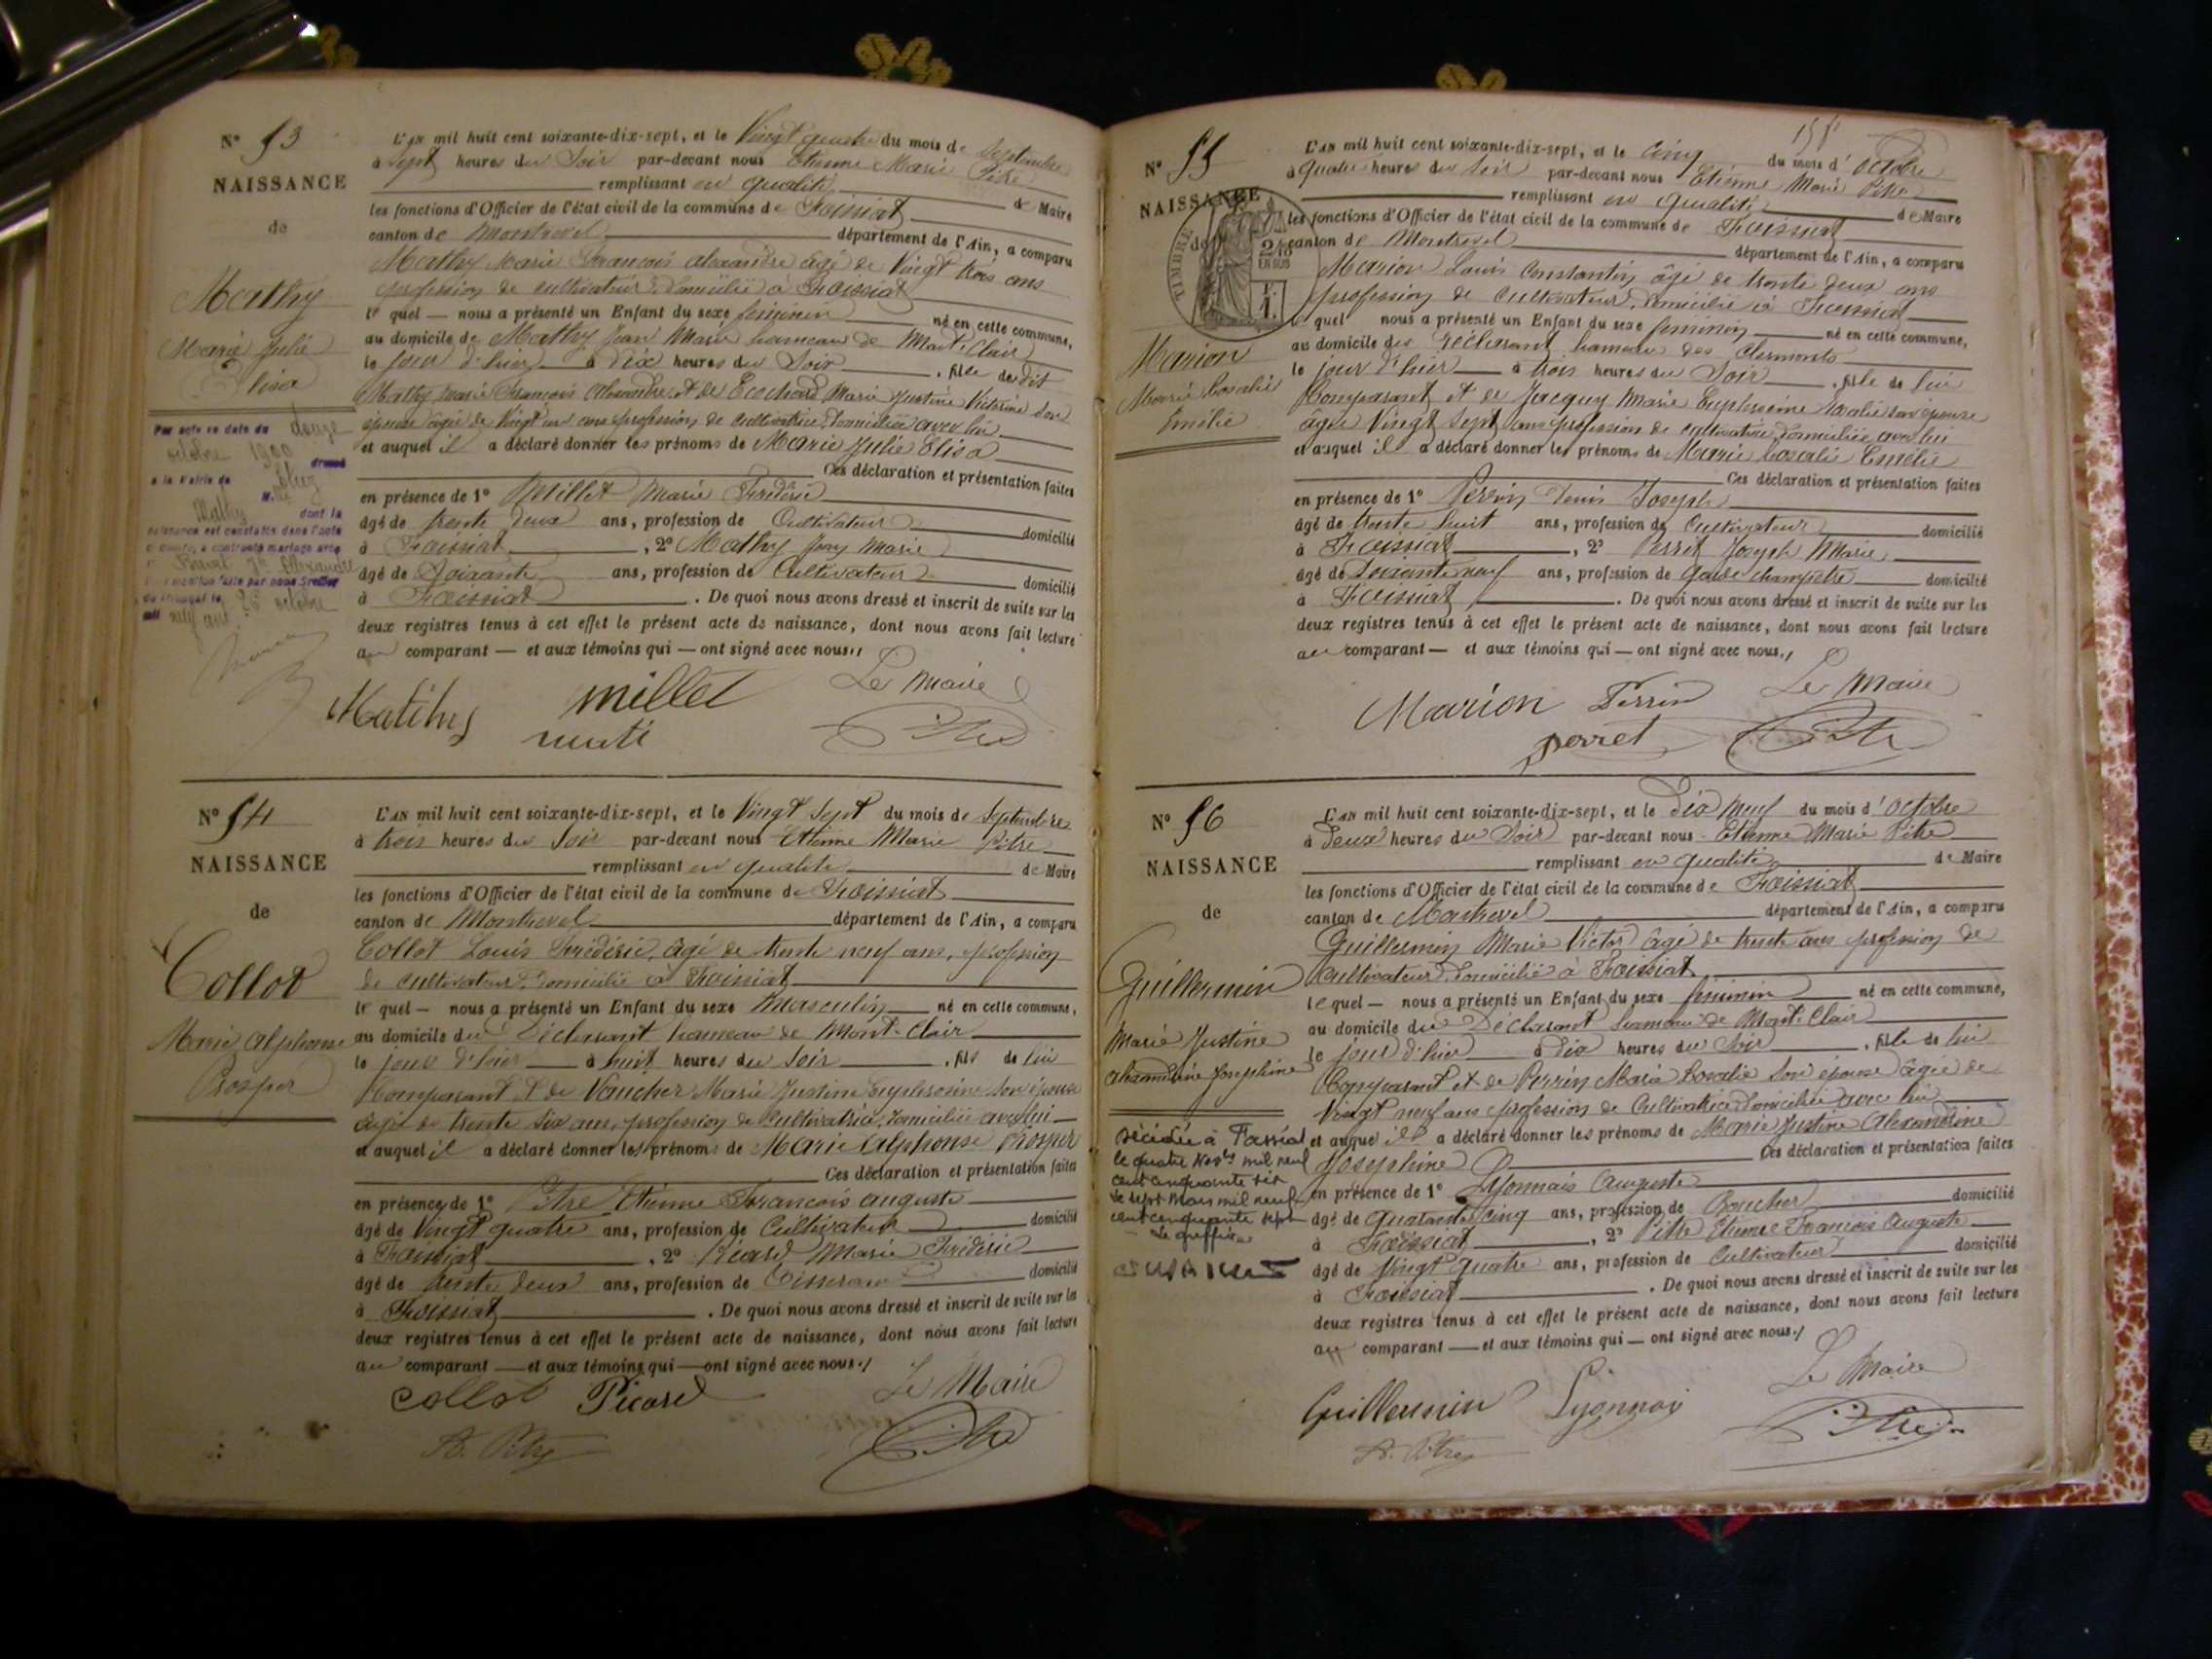 N° 53
NAISSANCE
de
Mathy
Marie Julie
Elisa
Par acte en date du douze
octobre 1900 dressé
à la Mairie de
Mathy dont la
naissance est constatée dans l'acte
ci-contre, a contracté mariage avec
Alexandre
Mention faite par nous Greffier
octobre
mil neuf cent
L'AN mil huit cent soixante-dix-sept, et le Vingt quatre du mois de Septembre
à Sept heures du Soir par-devant nous Etienne Marie Pitre
remplissant en qualité de Maire
les fonctions d'Officier de l'état civil de la commune de Foissiat
canton de Montrevel département de l'Ain, a comparu
Mathy Marie François Alexandre âgé de Vingt trois ans
profession de cultivateur domicilié à Foissiat
lequel — nous a présenté un Enfant du sexe féminin né en cette commune,
au domicile de Mathy Jean Marie hameau de Mont-Clair
le jour d'hier à dix heures du Soir, fille du dit
Mathy Marie François Alexandre et de Ecochard Marie Justine Victorine son
épouse âgée de Vingt un ans profession de cultivatrice domiciliée avec lui
et auquel il a déclaré donner les prénoms de Marie Julie Elisa
Ces déclaration et présentation faites
en présence de 1° Millet Marie Frédéric
âgé de trente deux ans, profession de Cultivateur domicilié
à Foissiat, 2° Mathy Jean Marie
âgé de Soixante ans, profession de Cultivateur domicilié
à Foissiat. De quoi nous avons dressé et inscrit de suite sur les
deux registres tenus à cet effet le présent acte de naissance, dont nous avons fait lecture
au comparant — et aux témoins qui — ont signé avec nous.
Le Maire
millet
N° 54
NAISSANCE
de
Collot
Marie Alphonse
Prosper
L'AN mil huit cent soixante-dix-sept, et le Vingt Sept du mois de Septembre
à trois heures du Soir par-devant nous Etienne Marie Pitre
remplissant en qualité de Maire
les fonctions d'Officier de l'état civil de la commune de Foissiat
canton de Montrevel département de l'Ain, a comparu
Collot Louis Frédéric, âgé de trente neuf ans, profession
de cultivateur, domicilié à Foissiat
lequel — nous a présenté un Enfant du sexe Masculin né en cette commune,
au domicile du Déclarant hameau de Mont-Clair
le jour d'hier à huit heures du Soir, fils de lui
Comparant et de Vaucher Marie Justine Euphrosine son épouse
âgée de trente six ans, profession de Cultivatrice, domiciliée avec lui
et auquel il a déclaré donner les prénoms de Marie Alphonse Prosper
Ces déclaration et présentation faites
en présence de 1° Pitre Etienne François Auguste
âgé de Vingt quatre ans, profession de Cultivateur domicilié
à Foissiat, 2° Picard Marie Frédéric
âgé de trente deux ans, profession de Tisserand domicilié
à Foissiat. De quoi nous avons dressé et inscrit de suite sur les
deux registres tenus à cet effet le présent acte de naissance, dont nous avons fait lecture
au comparant — et aux témoins qui — ont signé avec nous.
Le Maire
collot Picard
N° 55
NAISSANCE
de
TIMBRE
Marion
Marie Rosalie
Emélie
L'AN mil huit cent soixante-dix-sept, et le Cinq du mois d'Octobre
à Quatre heures du Soir par-devant nous Etienne Marie Pitre
remplissant en qualité de Maire
les fonctions d'Officier de l'état civil de la commune de Foissiat
canton de Montrevel département de l'Ain, a comparu
Marion Louis Constantin âgé de trente deux ans
profession de Cultivateur, domicilié à Foissiat
lequel nous a présenté un Enfant du sexe féminin né en cette commune,
au domicile du Déclarant hameau des Clermonts
le jour d'hier à trois heures du Soir, fille de lui
Comparant et de Jacquy Marie Euphrosine Rosalie son épouse
âgée Vingt Sept ans profession de cultivatrice, domiciliée avec lui
et auquel il a déclaré donner les prénoms de Marie Rosalie Emélie
Ces déclaration et présentation faites
en présence de 1° Perrin Denis Joseph
âgé de trente huit ans, profession de Cultivateur domicilié
à Foissiat, 2° Perret Joseph Marie
âgé de Soixante neuf ans, profession de Garde champêtre domicilié
à Foissiat. De quoi nous avons dressé et inscrit de suite sur les
deux registres tenus à cet effet le présent acte de naissance, dont nous avons fait lecture
au comparant — et aux témoins qui — ont signé avec nous.
Le Maire
Marion Perrin
perret
N° 56
NAISSANCE
de
Guillermin
Marie Justine
Alexandrine Josephine
Décédée à Foissiat
le quatre mil neuf
cent cinquante six
Le sept Mars mil neuf
cent cinquante sept
Le greffier
L'AN mil huit cent soixante-dix-sept, et le Dix Neuf du mois d'Octobre
à Deux heures du Soir par-devant nous Etienne Marie Pitre
remplissant en qualité de Maire
les fonctions d'Officier de l'état civil de la commune de Foissiat
canton de Montrevel département de l'Ain, a comparu
Guillermin Marie Victor âgé de trente ans profession de
Cultivateur, domicilié à Foissiat
lequel — nous a présenté un Enfant du sexe féminin né en cette commune,
au domicile du Déclarant hameau de Mont-Clair
le jour d'hier à dix heures du Soir, fille de lui
Comparant et de Perrin Marie Rosalie Son épouse âgée de
Vingt neuf ans profession de Cultivatrice domiciliée avec lui
et auquel il a déclaré donner les prénoms de Marie Justine Alexandrine
Josephine Ces déclaration et présentation faites
en présence de 1° Lyonnais Auguste
âgé de Quarante Cinq ans, profession de Boucher domicilié
à Foissiat, 2° Pitre Etienne François Auguste
âgé de Vingt Quatre ans, profession de Cultivateur domicilié
à Foissiat. De quoi nous avons dressé et inscrit de suite sur les
deux registres tenus à cet effet le présent acte de naissance, dont nous avons fait lecture
au comparant — et aux témoins qui — ont signé avec nous.
Le Maire
Guillermin Lyonnais